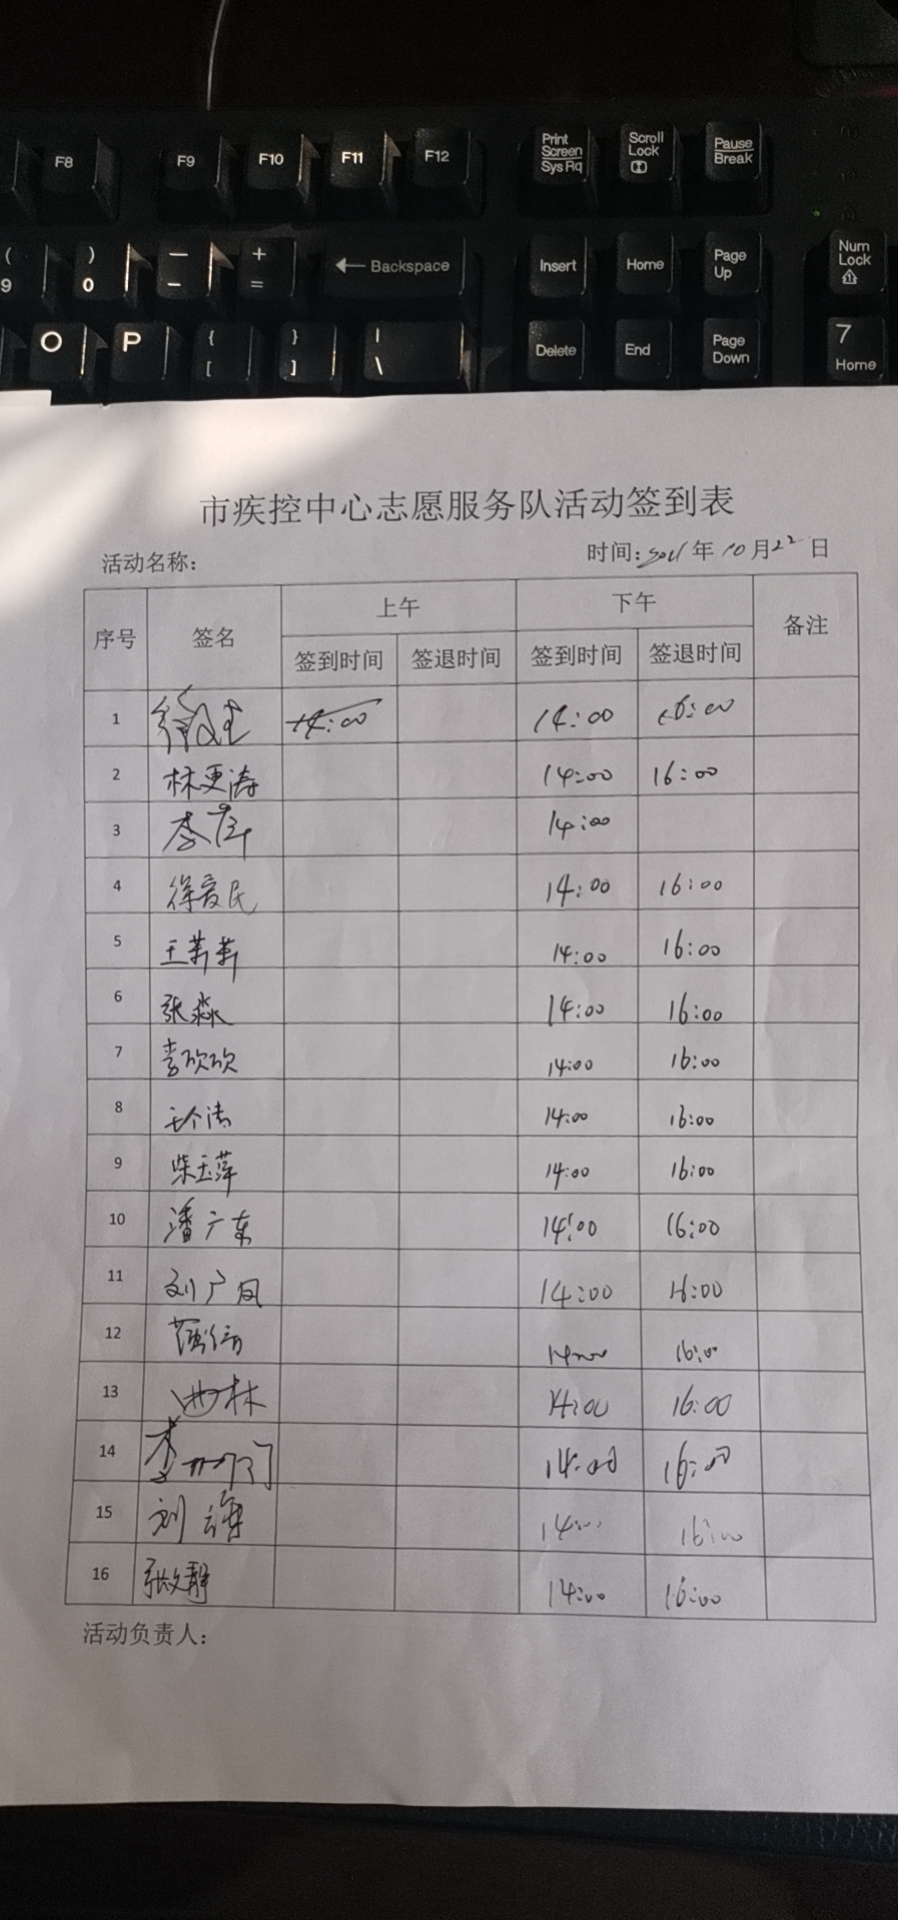 F8 F9 F10 F11 F12 Print Screen Sys Rq Scroll Lock Pause Break
( 9 ) 0 — - + = ← Backspace Insert Home Page Up Num Lock
O P { [ } ] | \ Delete End Page Down 7 Home
市疾控中心志愿服务队活动签到表
活动名称: 时间: 年10月22日
序号 签名 上午 下午 备注
签到时间 签退时间 签到时间 签退时间
1 14:00 14:00 16:00
2 林更涛 14:00 16:00
3 李 14:00
4 徐爱民 14:00 16:00
5 王莉莉 14:00 16:00
6 张淼 14:00 16:00
7 李欣欣 14:00 16:00
8 14:00 16:00
9 柴玉萍 14:00 16:00
10 潘广东 14:00 16:00
11 刘广凤 14:00 16:00
12 14:00 16:00
13 林 14:00 16:00
14 李 14:00 16:00
15 刘海 14:00 16:00
16 张文静 14:00 16:00
活动负责人: